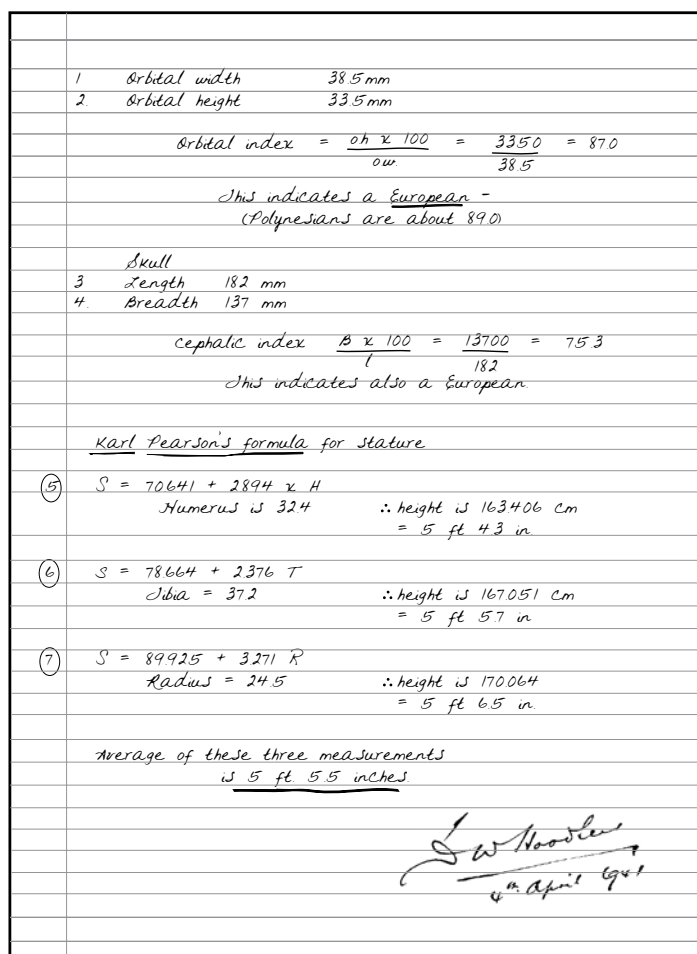 1 Orbital width 38.5 mm
2. Orbital height 33.5 mm
Orbital index = oh x 100 = 3350 = 87.0
ow. 38.5
This indicates a European -
(Polynesians are about 89.0)
Skull
3 Length 182 mm
4. Breadth 137 mm
Cephalic index B x 100 = 13700 = 75.3
l 182
This indicates also a European.
Karl Pearson's formula for stature
5 S = 70.641 + 2.894 x H
Humerus is 32.4 ∴ height is 163.406 cm
= 5 ft 4.3 in.
6 S = 78.664 + 2.376 T
Tibia = 37.2 ∴ height is 167.051 cm
= 5 ft 5.7 in
7 S = 89.925 + 3.271 R
Radius = 24.5 ∴ height is 170.064
= 5 ft 6.5 in.
Average of these three measurements
is 5 ft. 5.5 inches.
D W Hoodless
4th April 1941